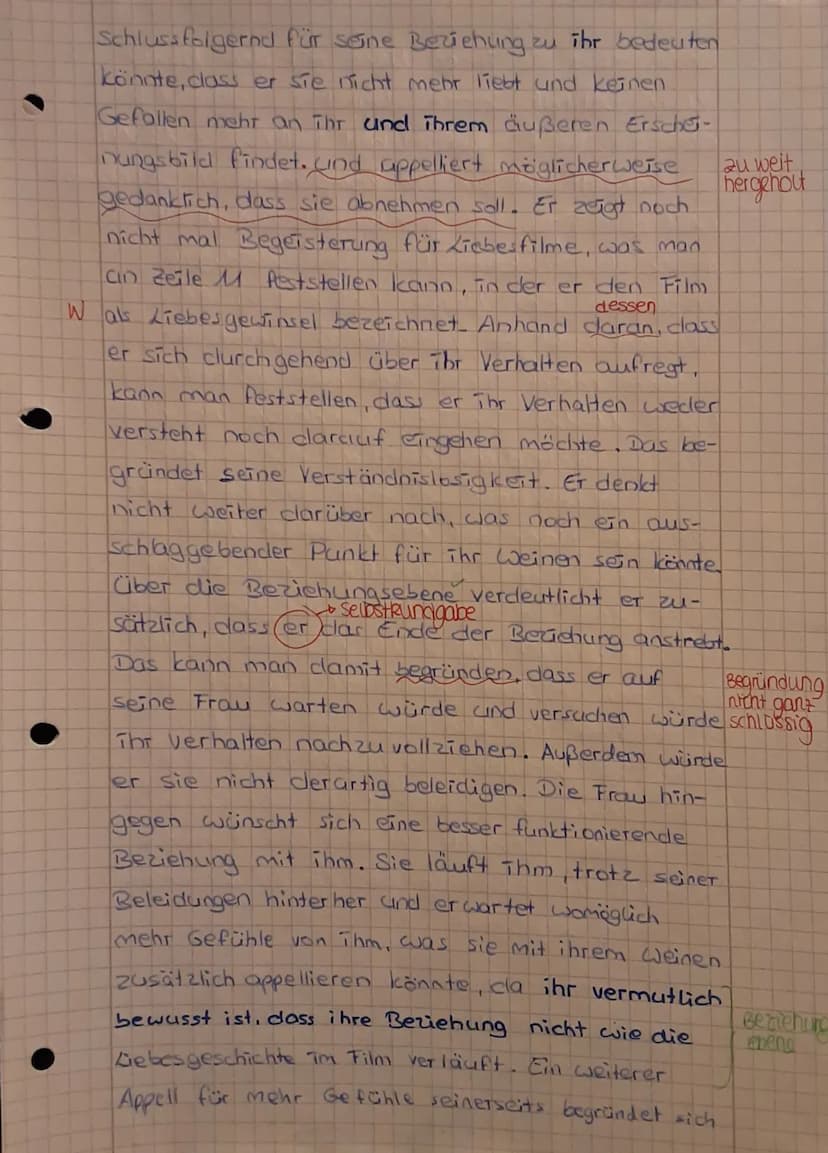 schlussfolgernd für seine Beziehung zu ihr bedeuten
könnte, dass er sie nicht mehr liebt und keinen
Gefallen mehr an ihr und ihrem äußeren Erschei-
nungsbild findet. und appelliert möglicherweise
zu weit
hergeholt
gedanklich, dass sie abnehmen soll. Er zeigt noch
nicht mal Begeisterung für Liebesfilme, was man
an Zeile 11 feststellen kann, in der er den Film
dessen
W als Liebesgewinsel bezeichnet. Anhand daran, dass
er sich durchgehend über ihr Verhalten aufregt,
kann man feststellen, dass er ihr Verhalten weder
versteht noch darauf eingehen möchte. Das be-
gründet seine Verständnislosigkeit. Er denkt
nicht weiter darüber nach, was noch ein aus-
schlaggebender Punkt für ihr Weinen sein könnte.
Über die Beziehungsebene verdeutlicht er zu-
Selbstkundgabe
sätzlich, dass er das Ende der Beziehung anstrebt.
Das kann man damit begründen, dass er auf
Begründung
nicht ganz
schlüssig
seine Frau warten würde und versuchen würde
ihr Verhalten nachzuvollziehen. Außerdem würde
er sie nicht derartig beleidigen. Die Frau hin-
gegen wünscht sich eine besser funktionierende
Beziehung mit ihm. Sie läuft ihm, trotz seiner
Beleidungen hinterher und erwartet womöglich
mehr Gefühle von ihm, was sie mit ihrem Weinen
zusätzlich appellieren könnte, da ihr vermutlich
bewusst ist, dass ihre Beziehung nicht wie die
Beziehung
ebene
Liebesgeschichte im Film verläuft. Ein weiterer
Appell für mehr Gefühle seinerseits begründet sich